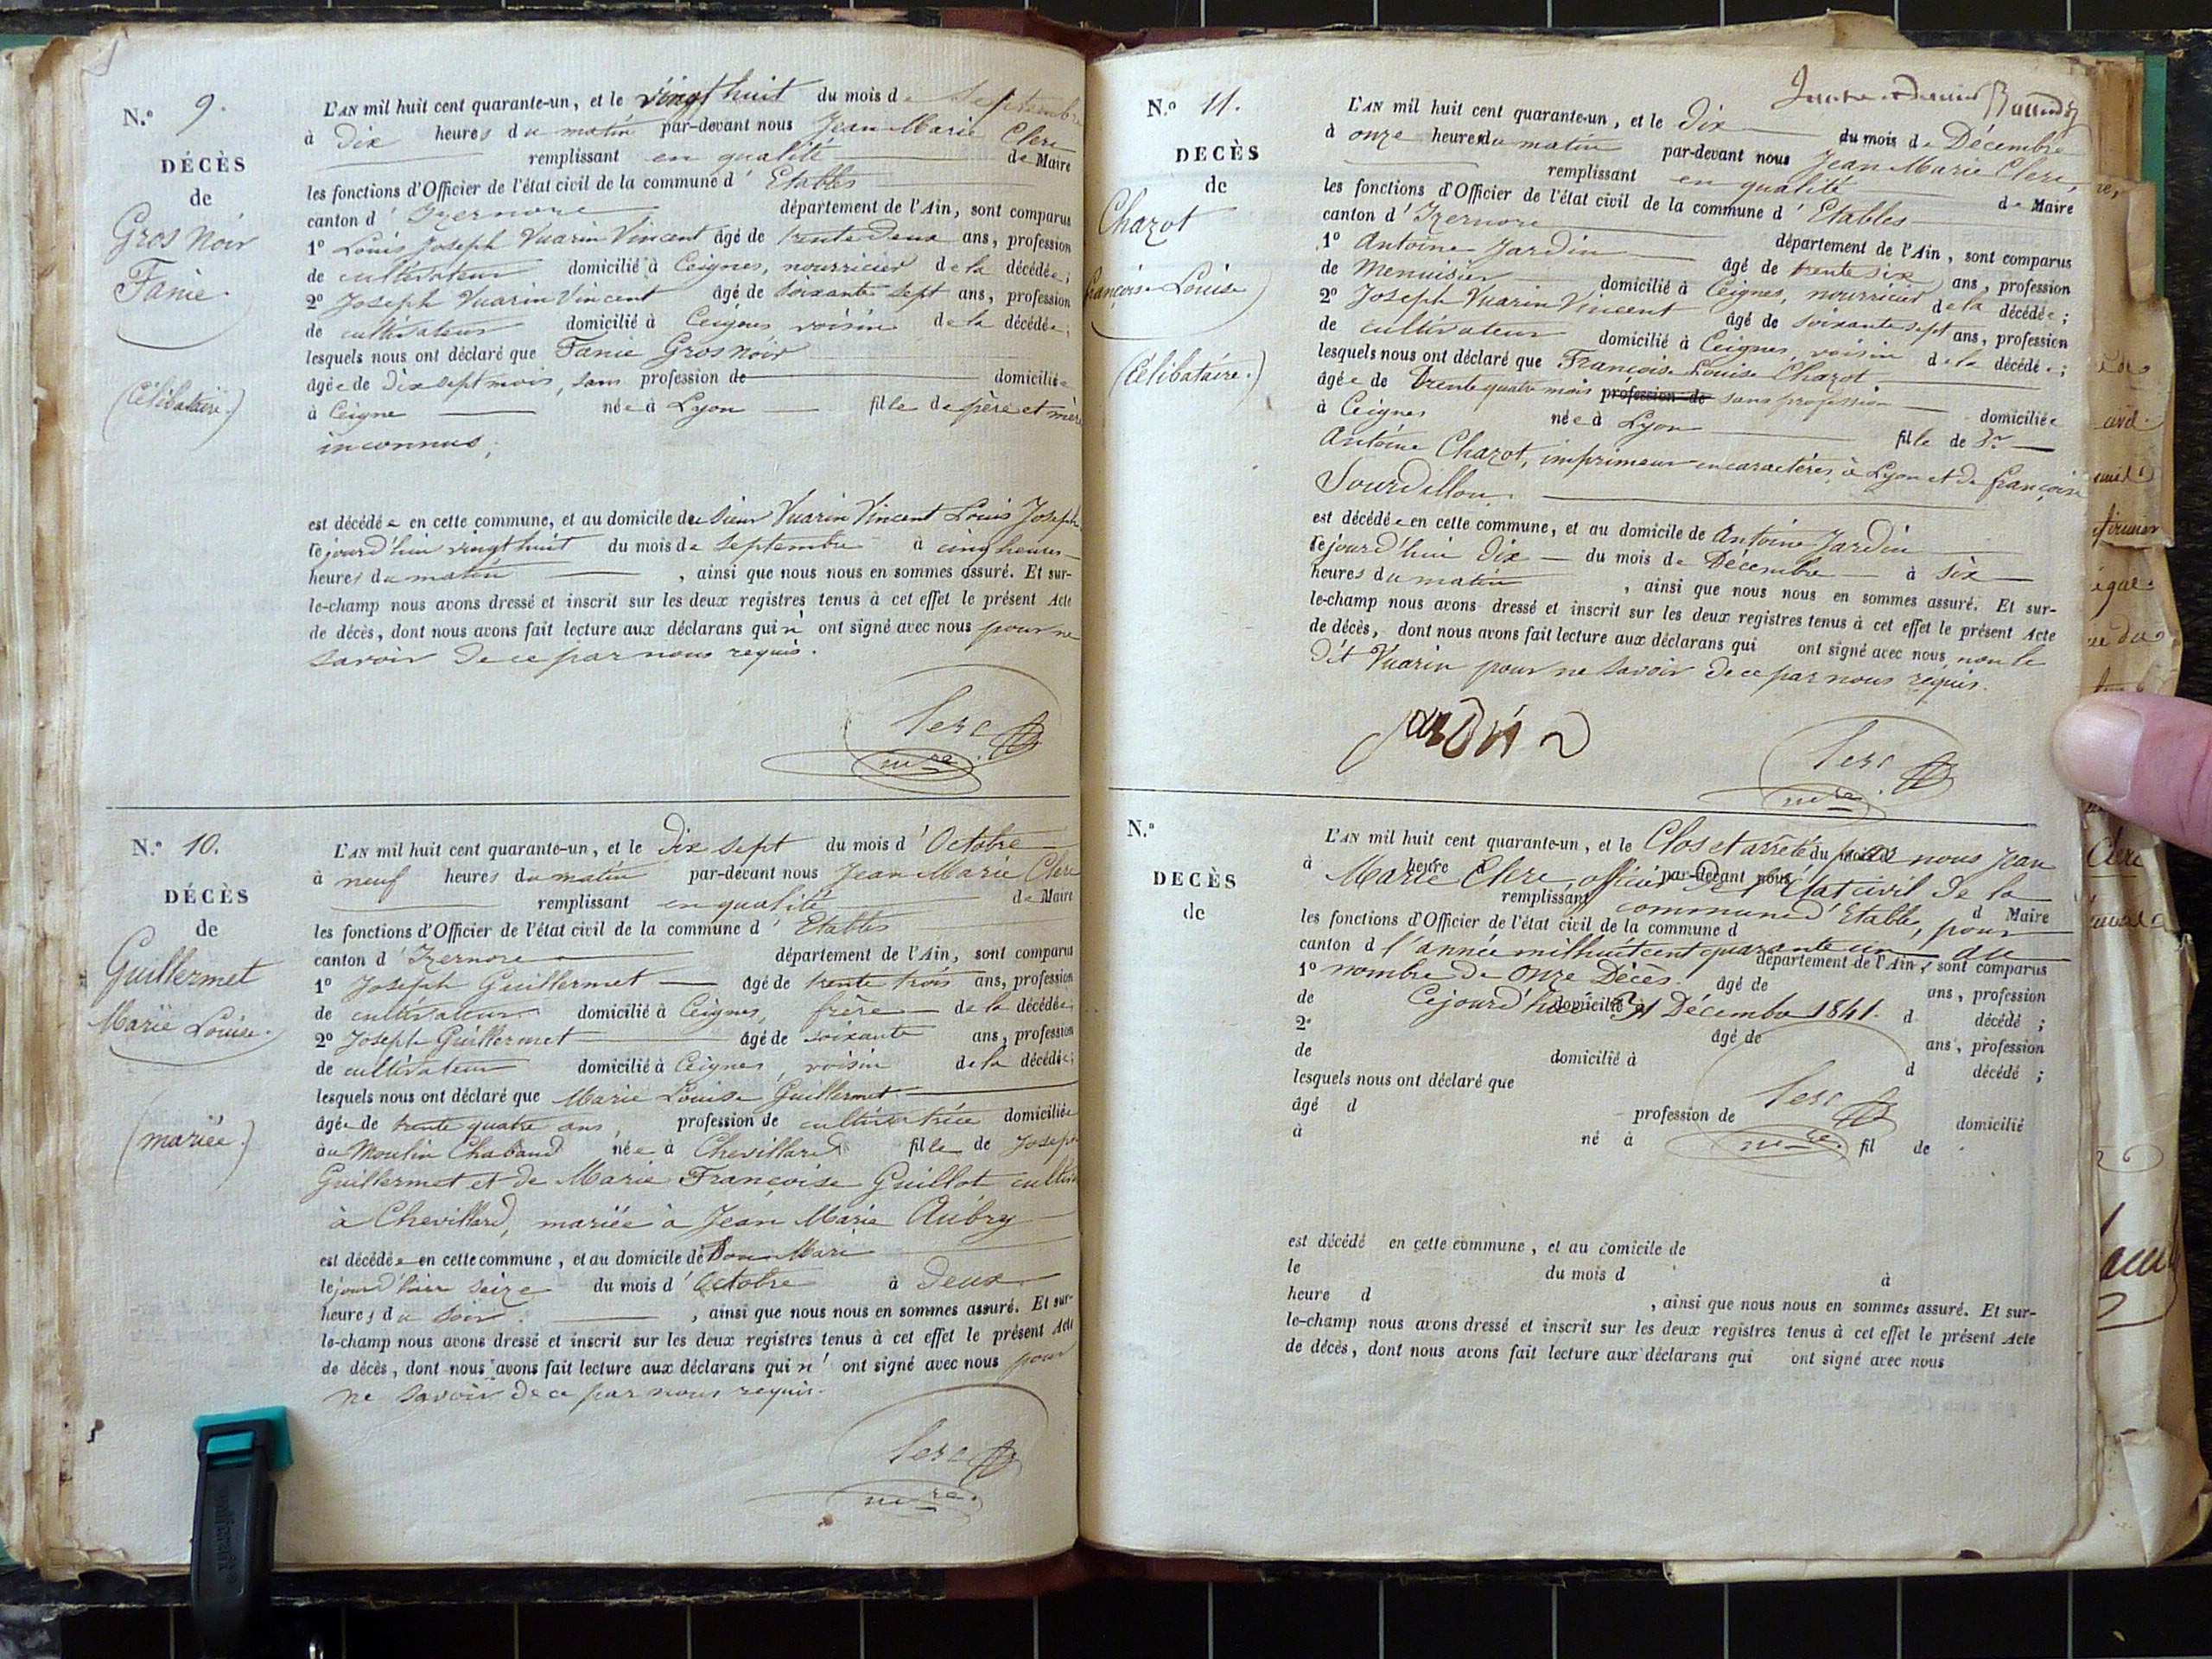 N.° 9.
DÉCÈS
de
Gros Noir
Fanie.
(Célibataire.)
L'AN mil huit cent quarante-un, et le vingt huit du mois de Septembre
à Dix heures du matin par-devant nous Jean Marie Clerc
remplissant en qualité de Maire
les fonctions d'Officier de l'état civil de la commune d'Etables
canton d'Izernore département de l'Ain, sont comparus
1° Louis Joseph Vuarin Vincent âgé de trente deux ans, profession
de cultivateur domicilié à Ceignes, nourricier de la décédée;
2° Joseph Vuarin Vincent âgé de soixante sept ans, profession
de cultivateur domicilié à Ceignes voisin de la décédée;
lesquels nous ont déclaré que Fanie Gros Noir
âgée de Dix sept mois, sans profession de domiciliée
à Ceigne née à Lyon fille de père et mère
inconnus;
est décédée en cette commune, et au domicile du sieur Vuarin Vincent Louis Joseph
cejourd'hui vingt huit du mois de Septembre à cinq heures
heures du matin, ainsi que nous nous en sommes assuré. Et sur-
le-champ nous avons dressé et inscrit sur les deux registres tenus à cet effet le présent Acte
de décès, dont nous avons fait lecture aux déclarans qui n' ont signé avec nous pour ne
savoir de ce par nous requis.
Clerc
mre.
N.° 10.
DÉCÈS
de
Guillermet
Marie Louise.
(mariée.)
L'AN mil huit cent quarante-un, et le Dix sept du mois d'Octobre
à neuf heures du matin par-devant nous Jean Marie Clerc
remplissant en qualité de Maire
les fonctions d'Officier de l'état civil de la commune d'Etables
canton d'Izernore département de l'Ain, sont comparus
1° Joseph Guillermet âgé de trente trois ans, profession
de cultivateur domicilié à Ceignes, frère de la décédée;
2° Joseph Guillermet âgé de soixante ans, profession
de cultivateur domicilié à Ceignes, voisin de la décédée;
lesquels nous ont déclaré que Marie Louise Guillermet
âgée de trente quatre ans, profession de cultivatrice domiciliée
au Moulin Chabaud née à Chevillard fille de Joseph
Guillermet et de Marie Françoise Guillot
à Chevillard, mariée à Jean Marie Aubry
est décédée en cette commune, et au domicile de Son Mari
le jour d'hier seize du mois d'Octobre à Deux
heures du soir, ainsi que nous nous en sommes assuré. Et sur-
le-champ nous avons dressé et inscrit sur les deux registres tenus à cet effet le présent Acte
de décès, dont nous avons fait lecture aux déclarans qui n' ont signé avec nous pour
ne savoir de ce par nous requis.
Clerc
mre.
N.° 11.
DECÈS
de
Chazot
Françoise Louise
(Célibataire.)
L'AN mil huit cent quarante-un, et le Dix du mois de Décembre
à onze heures du matin par-devant nous Jean Marie Clerc,
remplissant en qualité de Maire
les fonctions d'Officier de l'état civil de la commune d'Etables
canton d'Izernore département de l'Ain, sont comparus
1° Antoine Jardin âgé de trente six ans, profession
de Menuisier domicilié à Ceignes, nourricier de la décédée;
2° Joseph Vuarin Vincent âgé de soixante sept ans, profession
de cultivateur domicilié à Ceignes, voisin de la décédée;
lesquels nous ont déclaré que Françoise Louise Chazot
âgée de trente quatre mois profession de sans profession domiciliée
à Ceignes née à Lyon fille de Sr
Antoine Chazot, imprimeur en caractères, à Lyon et de françoise
Sourdillon.
est décédée en cette commune, et au domicile de Antoine Jardin
cejourd'hui Dix du mois de Décembre à six
heures du matin, ainsi que nous nous en sommes assuré. Et sur-
le-champ nous avons dressé et inscrit sur les deux registres tenus à cet effet le présent Acte
de décès, dont nous avons fait lecture aux déclarans qui ont signé avec nous, non le
dit Vuarin pour ne savoir de ce par nous requis.
jardin
Clerc
mre.
N.°
DECÈS
de
L'AN mil huit cent quarante-un, et le Clos et arrêté, du mois d par nous Jean
à heure d Marie Clerc, officier de par-devant nous l'Etat civil de la
remplissant commune d'Etables, d Maire
les fonctions d'Officier de l'état civil de la commune d pour
canton d l'année mil huit cent quarante un au département de l'Ain, sont comparus
1° nombre de Onze Décès. âgé de ans, profession
de Cejourd'hui domicilié à 31 Décembre 1841. d décédé;
2° âgé de ans, profession
de domicilié à d décédé;
lesquels nous ont déclaré que
Clerc
âgé d profession de domicilié
à né à mre. fil de
est décédé en cette commune, et au domicile de
le du mois d à
heure d, ainsi que nous nous en sommes assuré. Et sur-
le-champ nous avons dressé et inscrit sur les deux registres tenus à cet effet le présent Acte
de décès, dont nous avons fait lecture aux déclarans qui ont signé avec nous